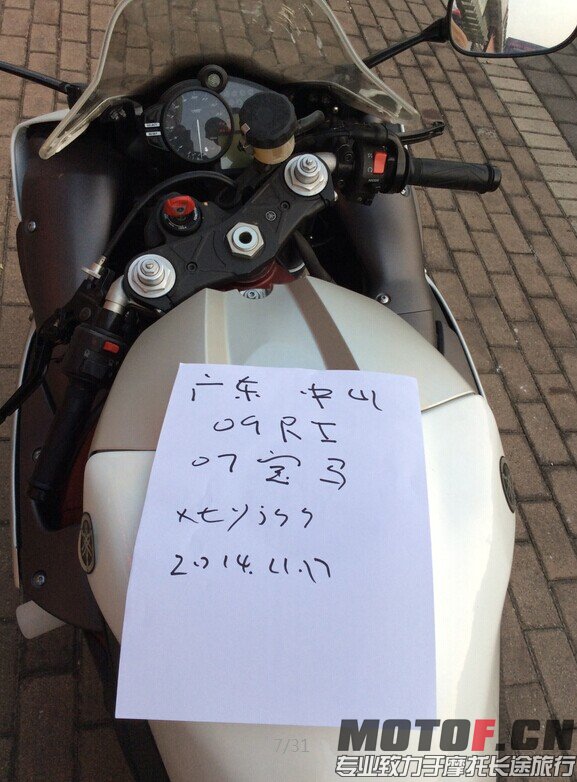 广东 中山
09 R I
07 宝马
2014.11.17
7/31
MOTOF.CN
专业致力于摩托长途旅行